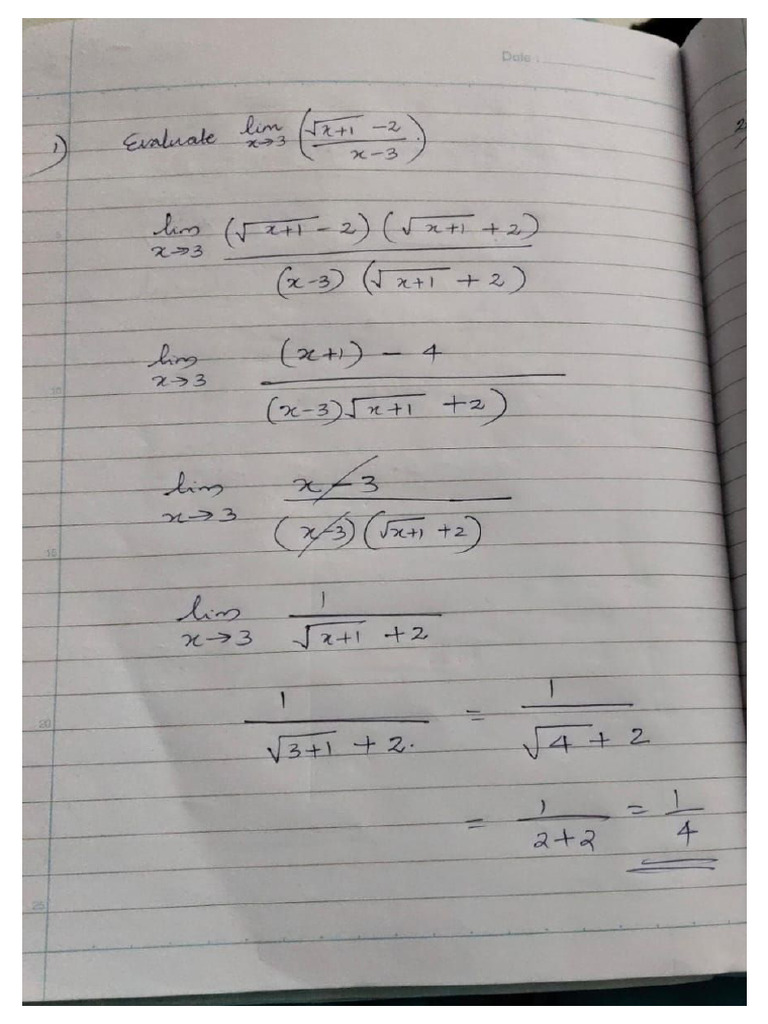 Date :
1) Evaluate lim x→3 (√(x+1) - 2 / x - 3)
2)
lim x→3 (√(x+1) - 2) (√(x+1) + 2) / (x-3) (√(x+1) + 2)
lim x→3 (x+1) - 4 / (x-3)√(x+1) + 2)
10
lim x→3 x - 3 / (x-3) (√(x+1) + 2)
15
lim x→3 1 / √(x+1) + 2
20
1 / √(3+1) + 2. = 1 / √4 + 2
= 1 / 2+2 = 1 / 4
25